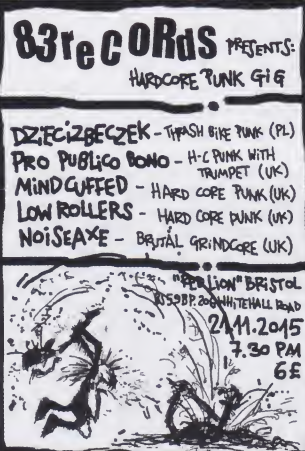 83reCORds PRESENTS:
HARDCORE PUNK GIG
DZIECIZBECZEK - THRASH BIKE PUNK (PL)
PRO PUBLICO BONO - H-C PUNK WITH
TRUMPET (UK)
MINDCUFFED - HARD CORE PUNK (UK)
LOW ROLLERS - HARD CORE PUNK (UK)
NOISEAXE - BRUTAL GRINDCORE (UK)
"RED LION" BRISTOL
BS59BP. 206 WHITEHALL ROAD
21.11.2015
7.30 PM
6£